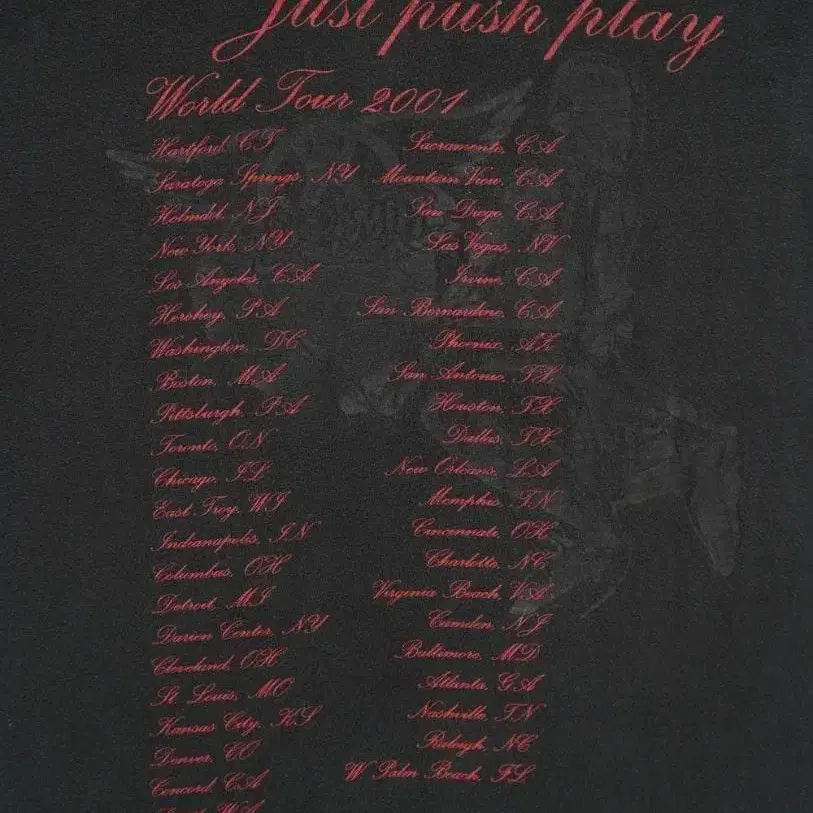 Just push play
World Tour 2001
Hartford, CT
Saratoga Springs, NY
Holmdel, NJ
New York, NY
Los Angeles, CA
Hershey, PA
Washington, DC
Boston, MA
Pittsburgh, PA
Toronto, ON
Chicago, IL
East Troy, WI
Indianapolis, IN
Columbus, OH
Detroit, MI
Darien Center, NY
Cleveland, OH
St. Louis, MO
Kansas City, KS
Denver, CO
Concord, CA
WA
Sacramento, CA
Mountain View, CA
San Diego, CA
Las Vegas, NV
Irvine, CA
San Bernardino, CA
Phoenix, AZ
San Antonio, TX
Houston, TX
Dallas, TX
New Orleans, LA
Memphis, TN
Cincinnati, OH
Charlotte, NC
Virginia Beach, VA
Camden, NJ
Baltimore, MD
Atlanta, GA
Nashville, TN
Raleigh, NC
W Palm Beach, FL